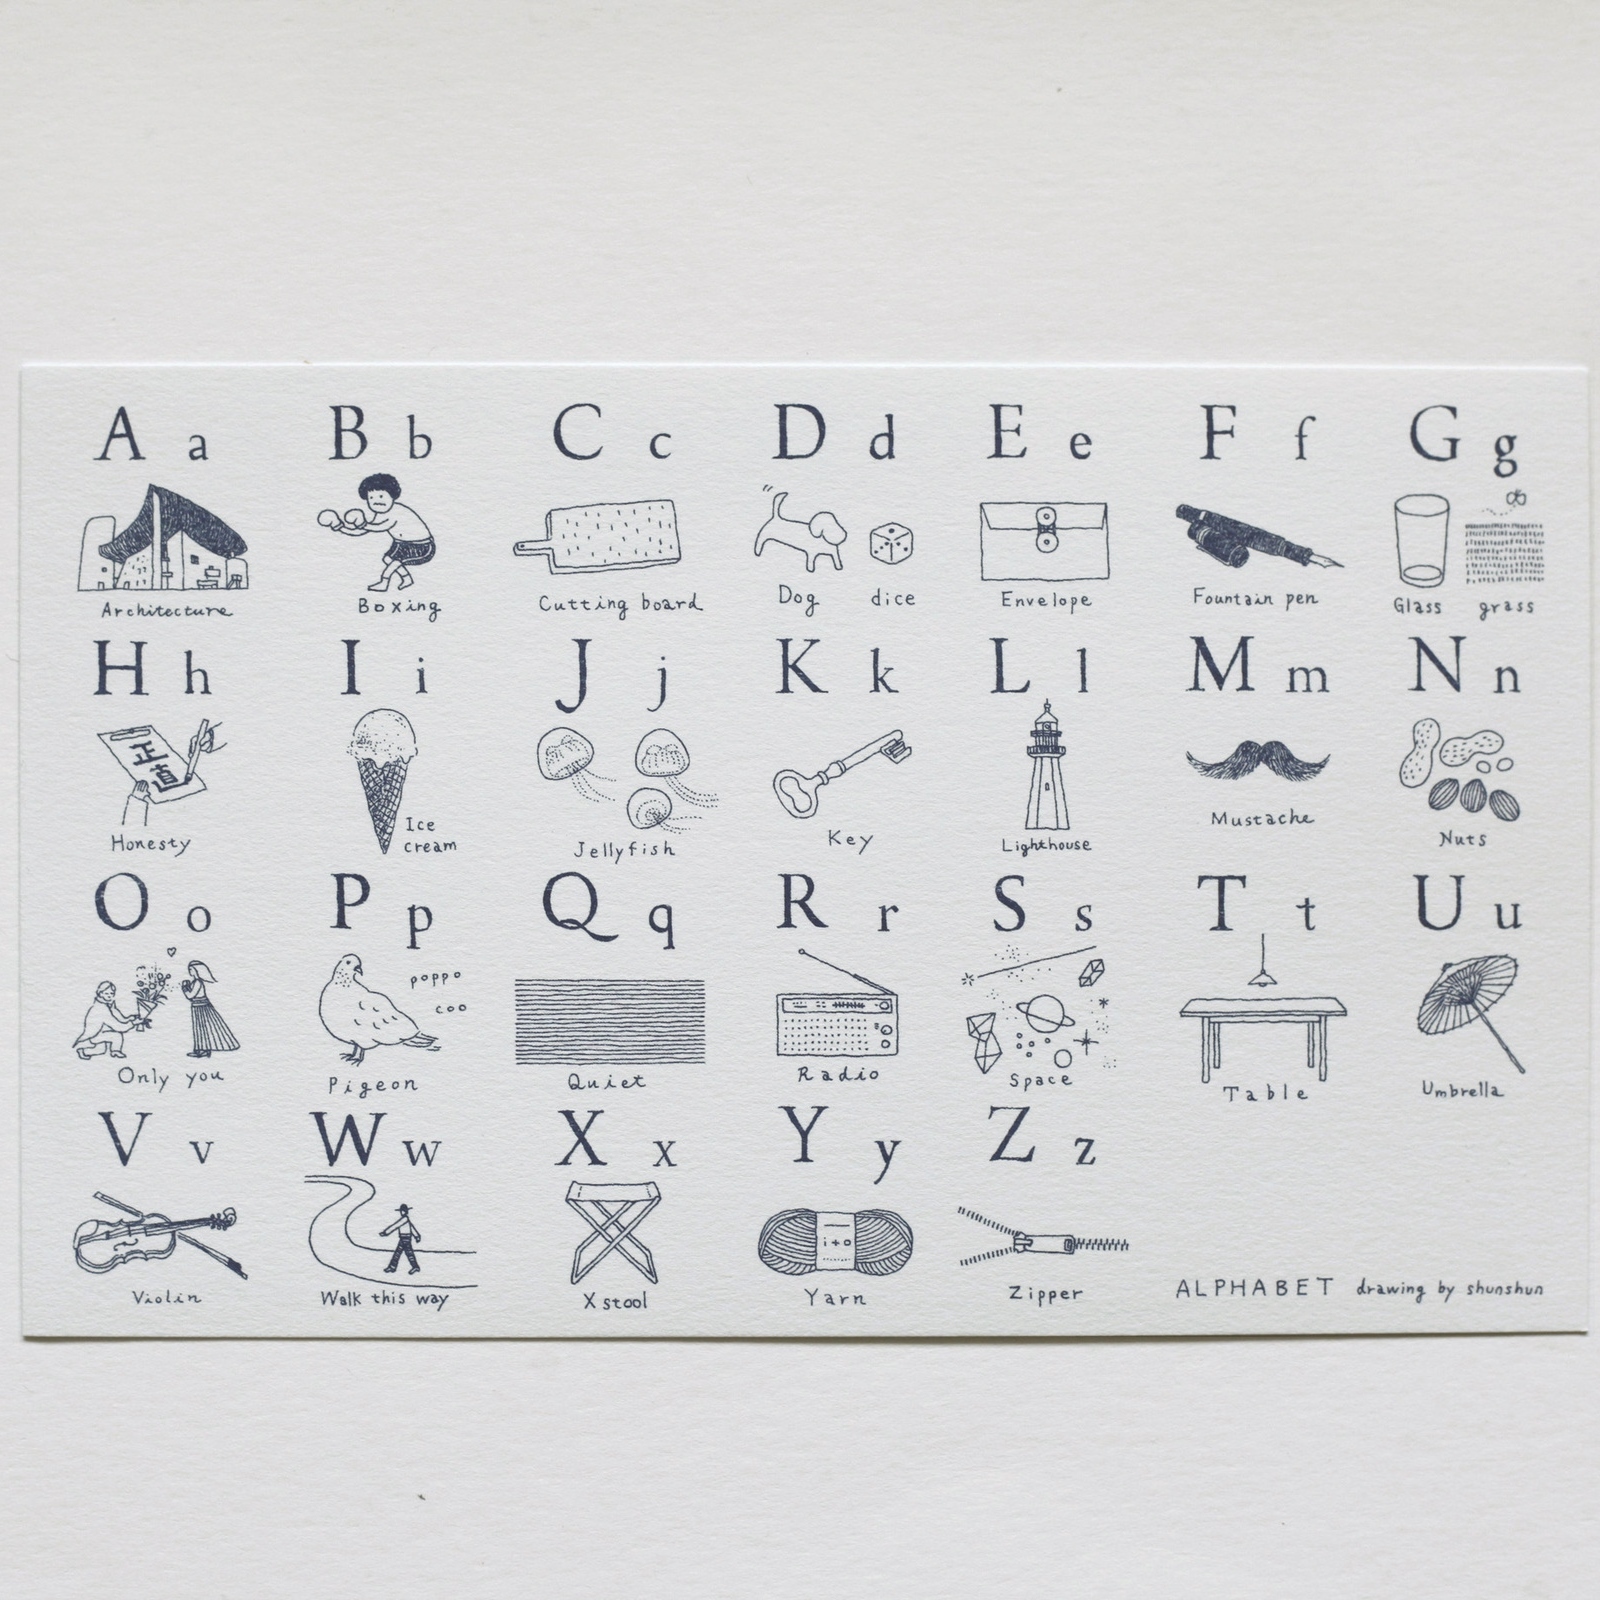 A a B b C c D d E e F f G g
Architecture Boxing Cutting board Dog dice Envelope Fountain pen Glass grass
H h I i J j K k L l M m N n
正直
Honesty Ice cream Jellyfish Key Lighthouse Mustache Nuts
O o P p Q q R r S s T t U u
poppo
coo
Only you Pigeon Quiet Radio Space Table Umbrella
V v W w X x Y y Z z
i+o
Violin Walk this way X stool Yarn Zipper
ALPHABET drawing by shunshun